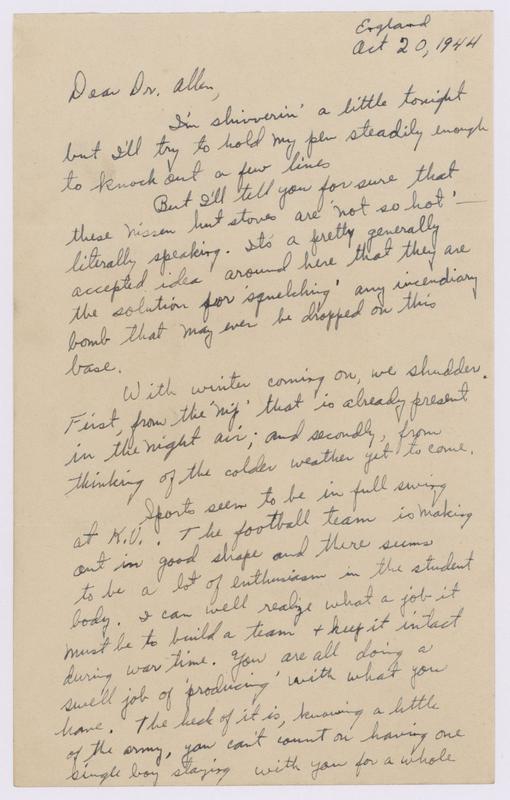 England
Oct 20, 1944
Dear Dr. Allen,
I'm shivverin' a little tonight
but I'll try to hold my pen steadily enough
to knock out a few lines
But I'll tell you for sure that
these Nissen hut stoves are 'not so hot' —
literally speaking. It's a pretty generally
accepted idea around here that they are
the solution for 'squelching' any incendiary
bomb that may ever be dropped on this
base.
With winter coming on, we shudder.
First, from the 'nip' that is already present
in the night air; and secondly, from
thinking of the colder weather yet to come.
Sports seem to be in full swing
at K.U. . The football team is making
out in good shape and there seems
to be a lot of enthusiasm in the student
body. I can well realize what a job it
must be to build a team + keep it intact
during war time. You are all doing a
swell job of 'producing' with what you
have. The heck of it is, knowing a little
of the army, you can't count on having one
single boy staying with you for a whole